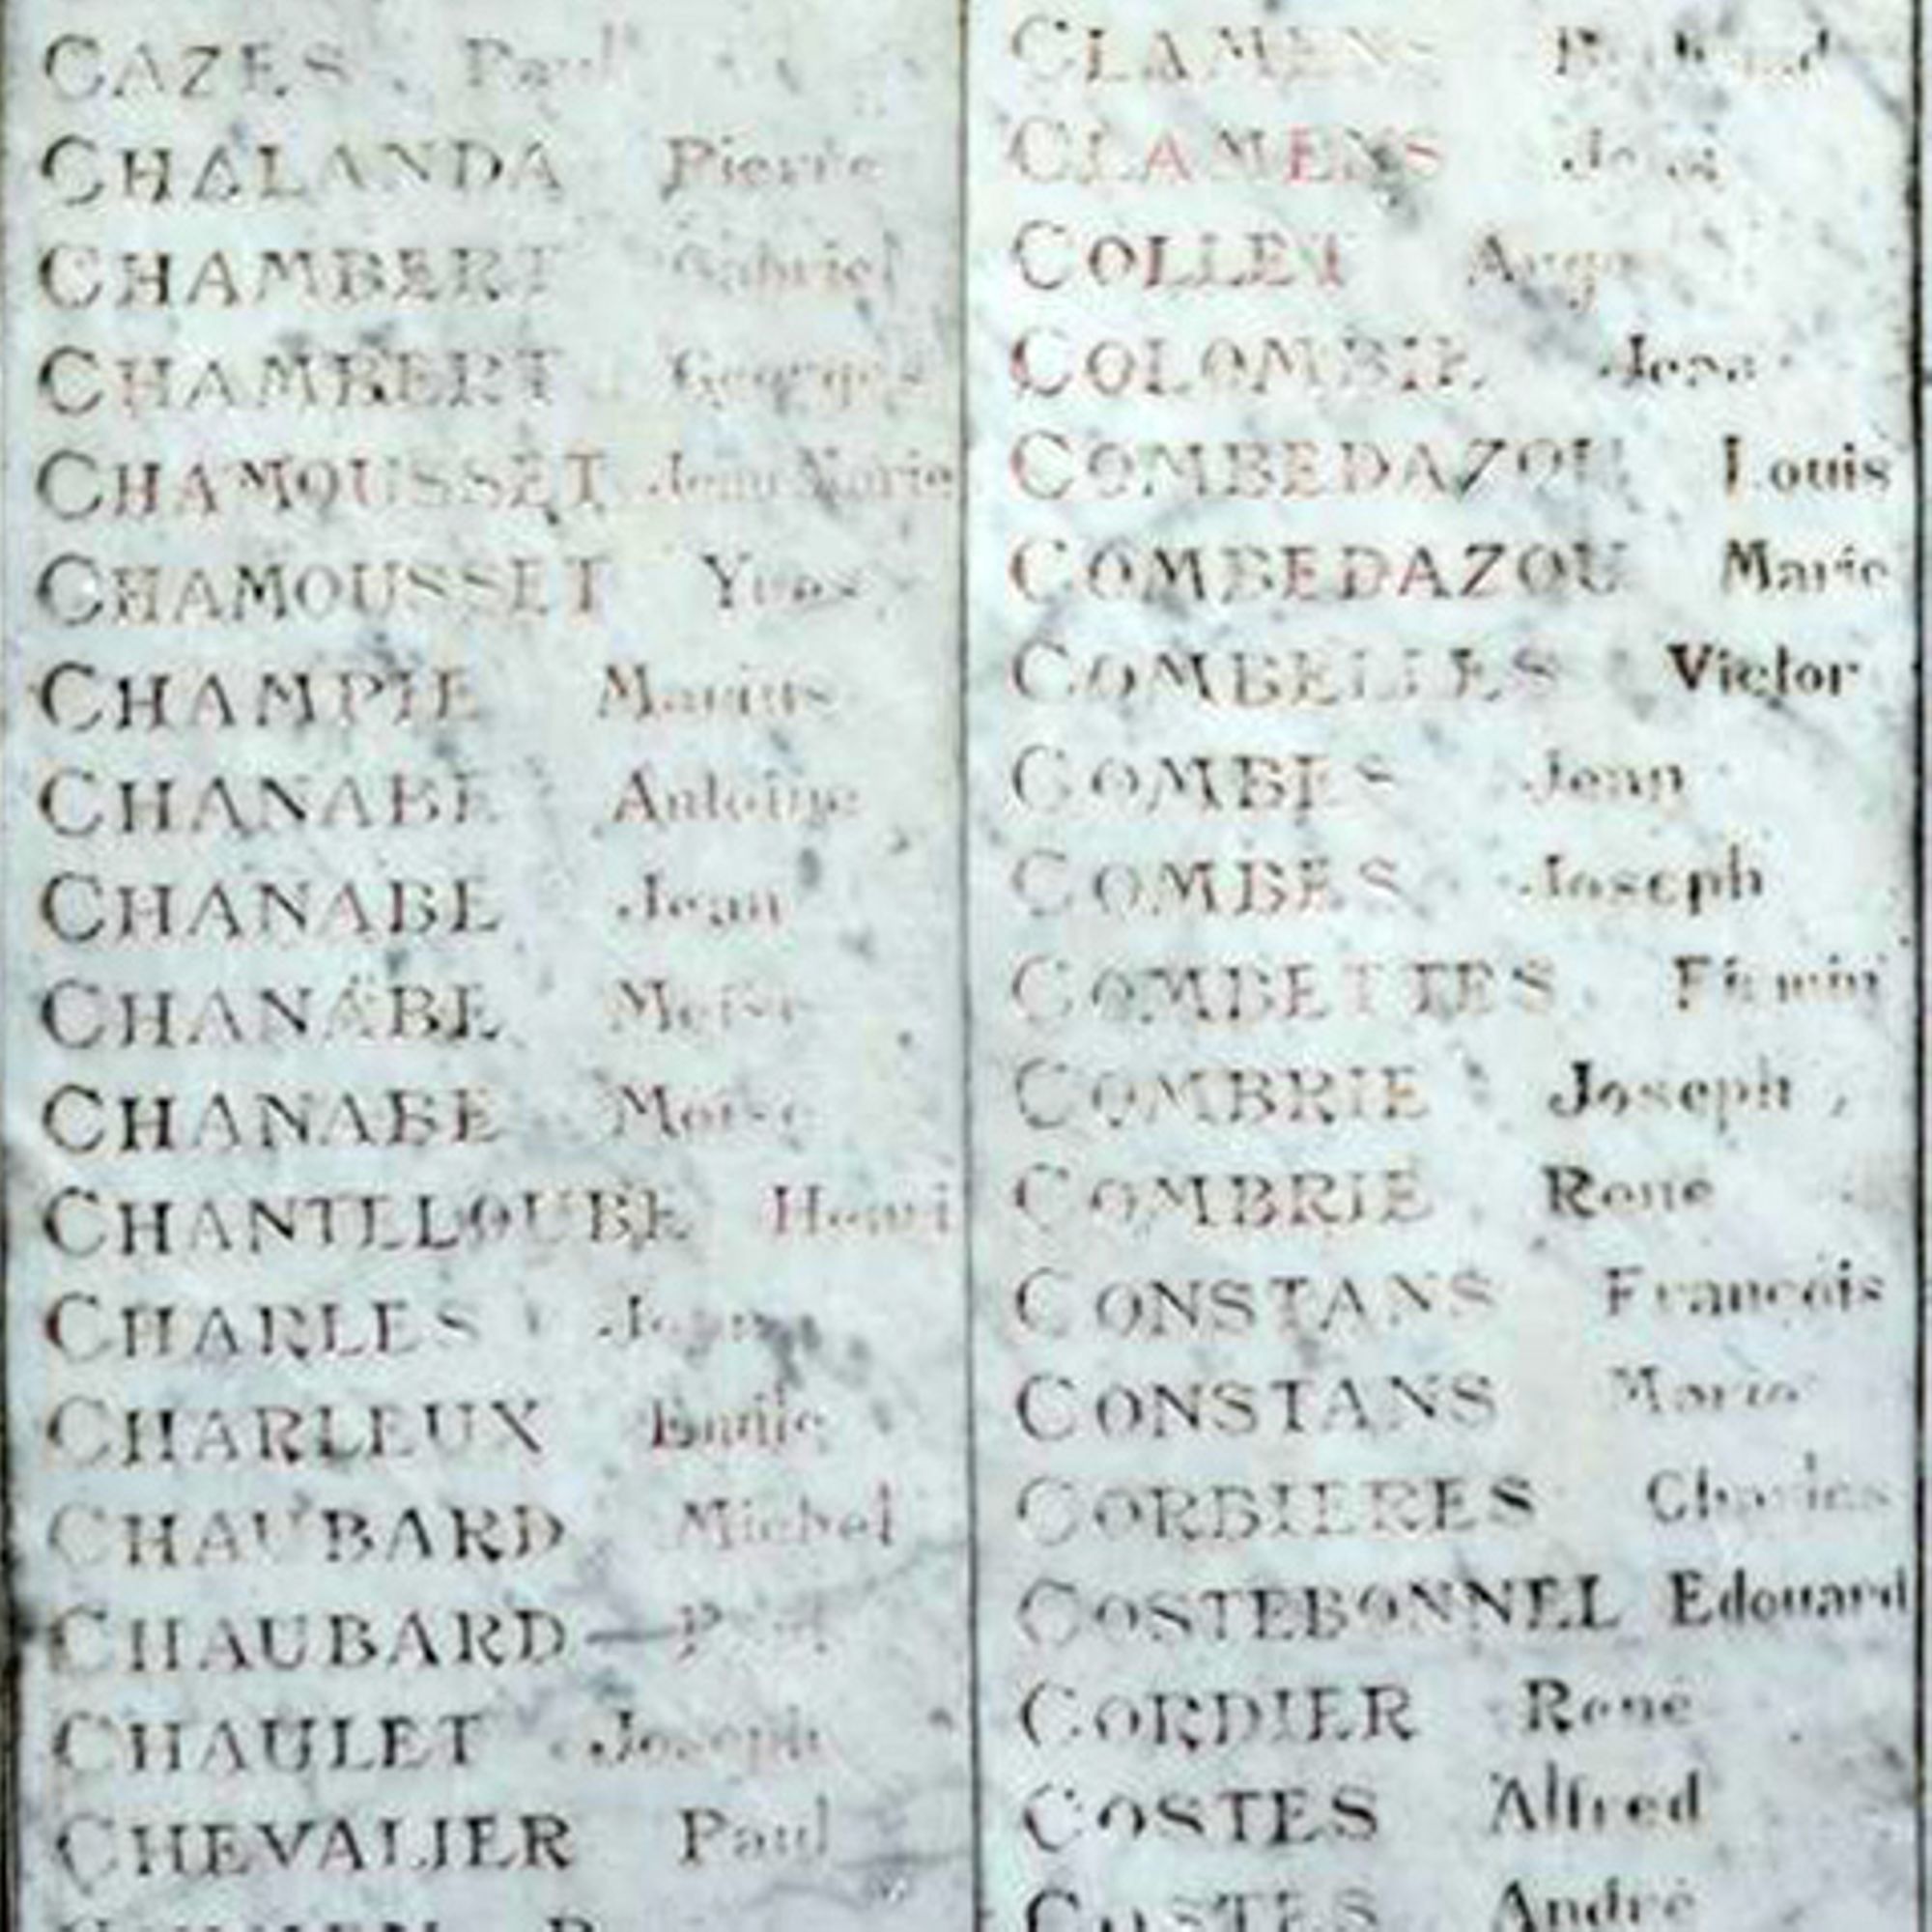 CAZES Paul
CHALANDA Pierre
CHAMBERT Gabriel
CHAMBERT Georges
CHAMOUSSET Jean Marie
CHAMOUSSET Yves
CHAMPIE Marius
CHANABE Antoine
CHANABE Jean
CHANABE Moïse
CHANABE Moïse
CHANTELOUBE Henri
CHARLES Jean
CHARLEUX Emile
CHAUBARD Michel
CHAUBARD
CHAULET Joseph
CHEVALIER Paul
CLAMENS
CLAMENS
COLLET
COLOMBIE Jean
COMBEDAZOU Louis
COMBEDAZOU Marie
COMBELLES Victor
COMBES Jean
COMBES Joseph
COMBETTES Firmin
COMBRIE Joseph
COMBRIE René
CONSTANS François
CONSTANS Marie
CORBIERES Charles
COSTEBONNEL Edouard
CORDIER René
COSTES Alfred
COSTES André